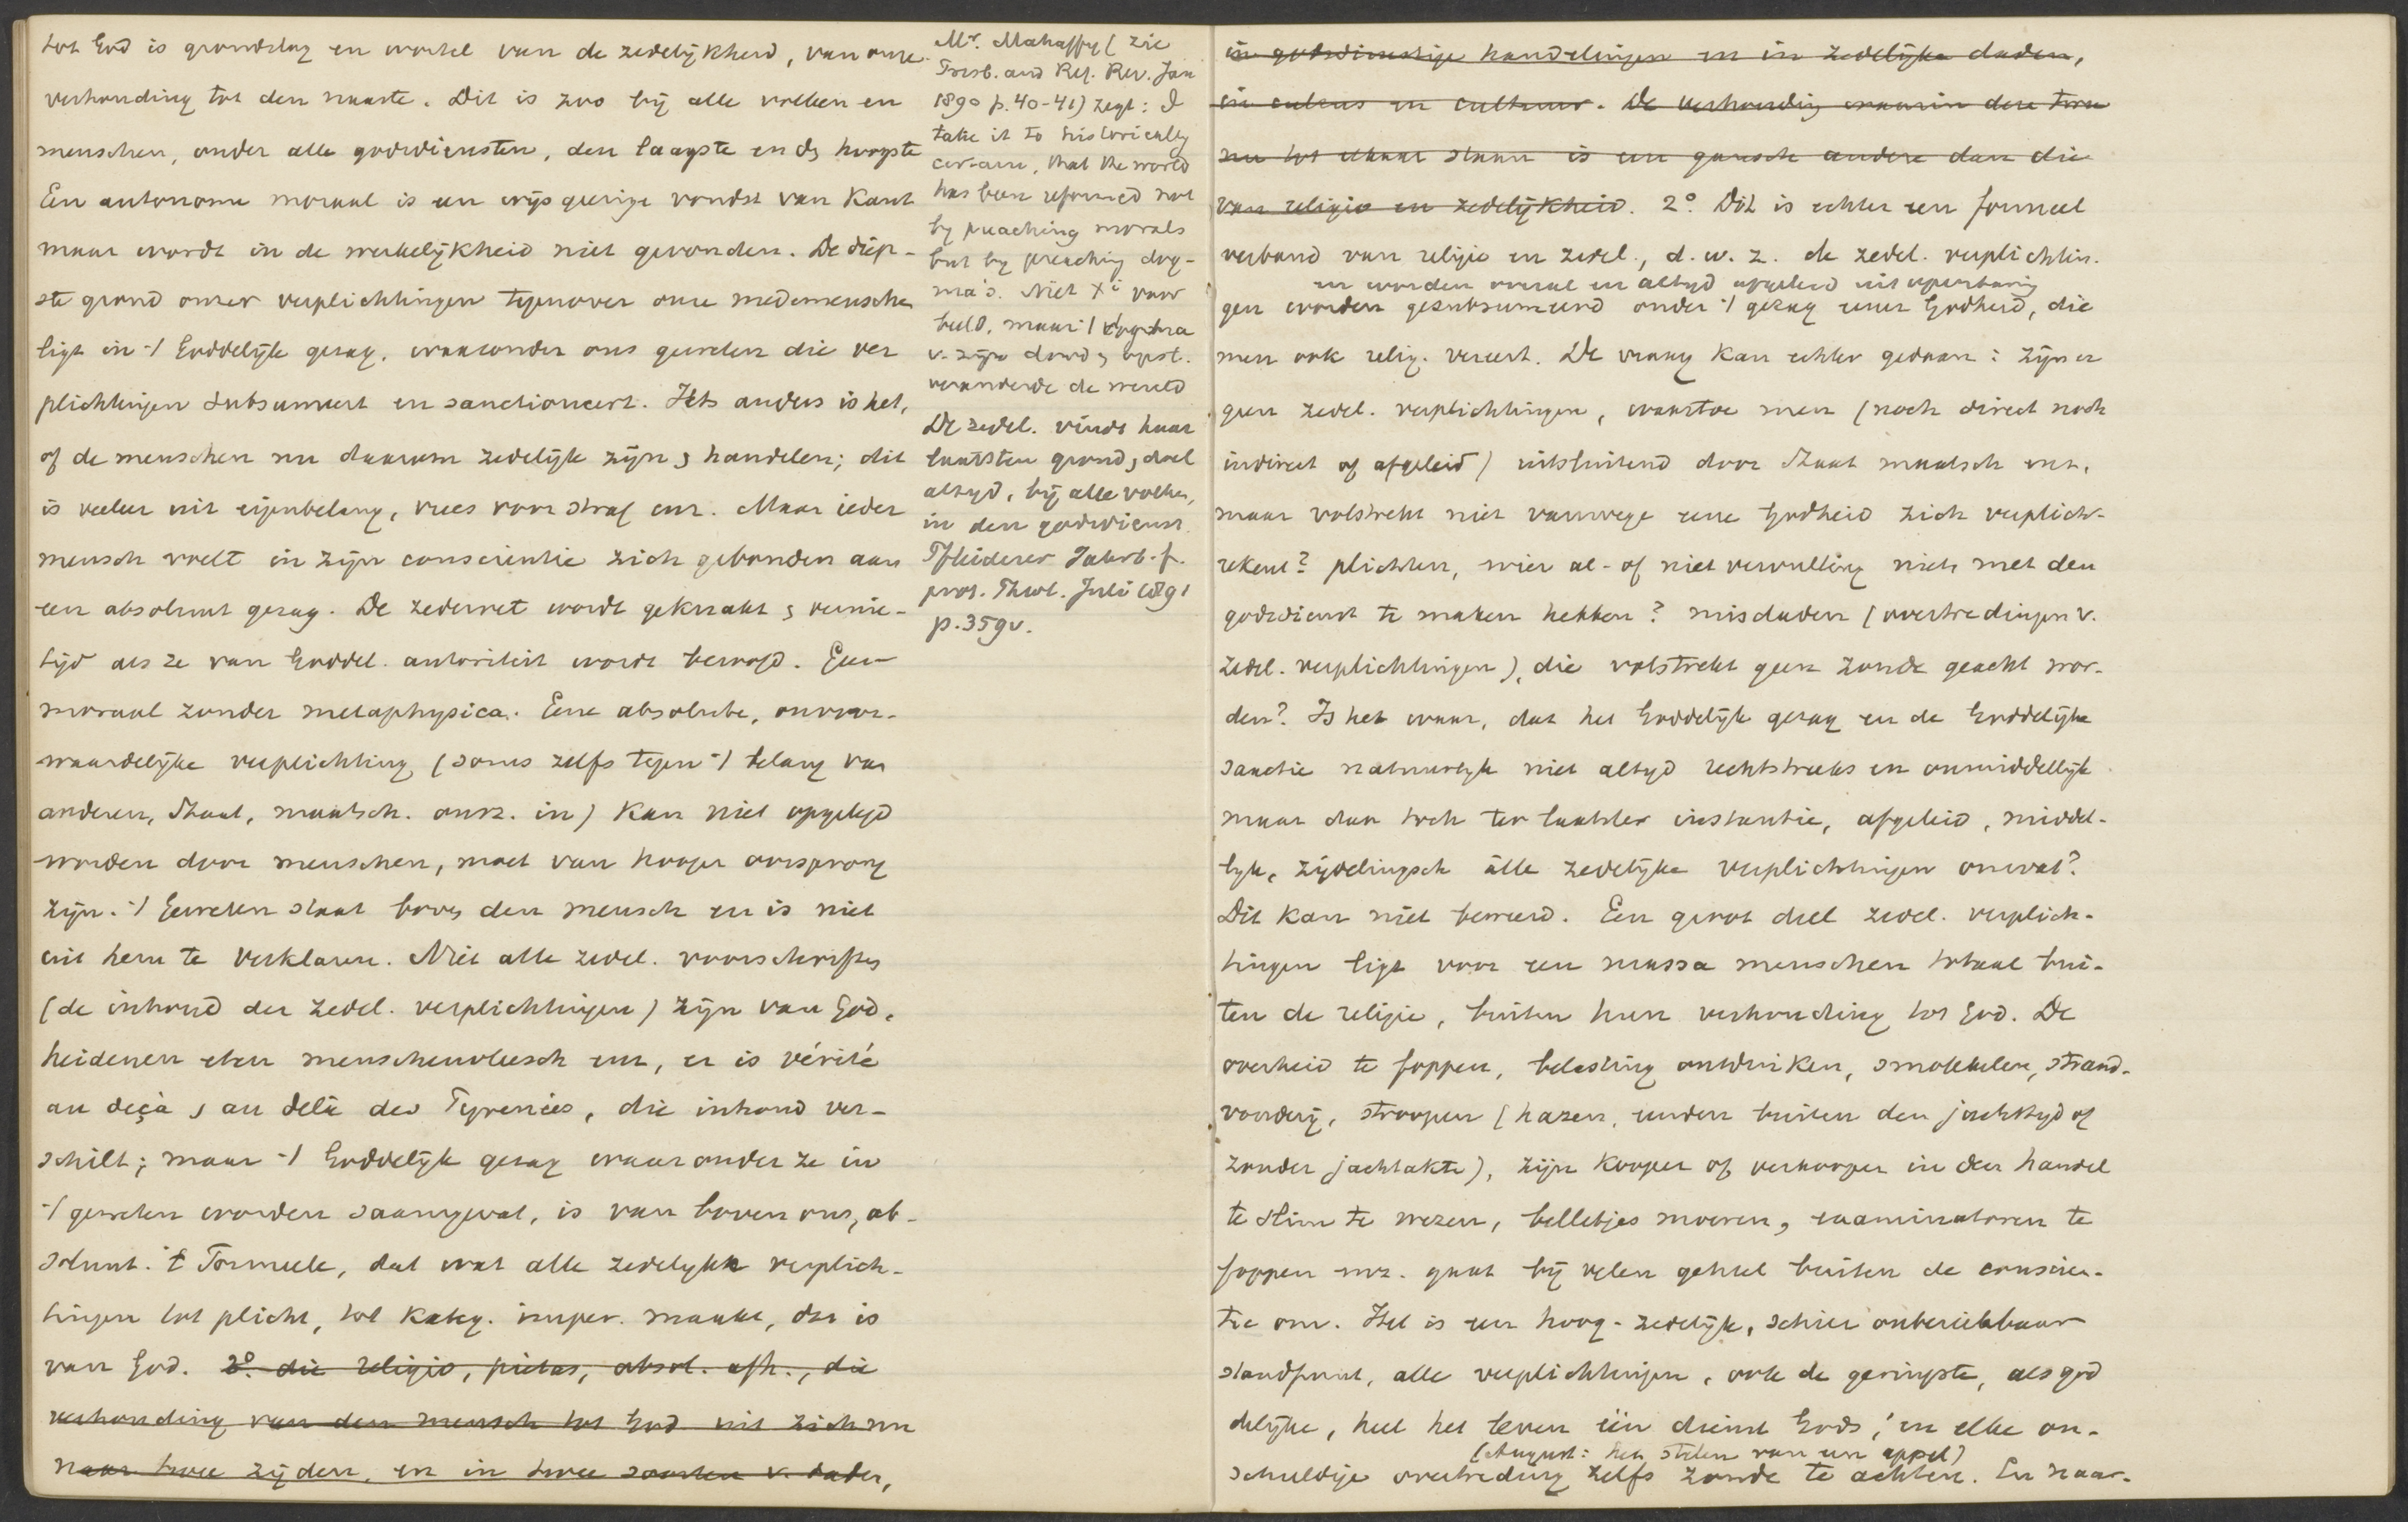 tot God is grondslag en wortel van de zedelijkheid, van onze
verhouding tot den naaste. Dit is zoo bij alle volken en
menschen, onder alle godsdiensten, den laagste en de hoogste
Een autonome moraal is een wijsgeerige vondst van Kant
maar wordt in de werkelijkheid niet gevonden. De diep-
ste grond onzer verplichtingen tegenover onze medemenschen
ligt in 't Goddelijk gezag, waaronder ons geweten die ver
plichtingen subsumeert en sanctioneert. Iets anders is het,
of de menschen nu daarom zedelijk zijn & handelen; dit
is veeleer uit eigenbelang, vrees voor straf enz. Maar ieder
mensch voelt in zijn conscientie zich gebonden aan
een absoluut gezag. De zedewet wordt geknakt & vernie-
tigd als ze van Goddel. autoriteit wordt beroofd. Geen
moraal zonder metaphysica. Eene absolute, onvoor-
waardelijke verplichting (soms zelfs tegen 't belang van
anderen, Staat, maatsch. enz. in) kan niet opgelegd
worden door menschen, moet van hooger oorsprong
zijn. 't Geweten staat boven den mensch en is niet
uit hem te verklaren. Niet alle zedel. voorschriften
(de inhoud der zedel. verplichtingen) zijn van God,
heidenen eten menschenvleesch enz, er is vérité
au deçà, au delà des Pyrenées, die inhoud ver-
schilt; maar 't Goddelijk gezag waaronder ze in
't geweten worden saamgevat, is van boven ons, ab-
soluut. 't Formeele, dat wat alle zedelijke verplich-
tingen tot plicht, tot kateg. imper. maakt, dat is
van God. 2° die religio, pietas, absol. afh., die
verhouding van den mensch tot God uit zich nu
naar twee zijden, en in twee soorten v. daden,
Mr. Mahaffy (zie
Presb. and Ref. Rev. Jan
1890 p. 40-41) zegt: I
take it to historically
certain, that the world
has been reformed not
by preaching morals
but by preaching dog-
ma's. Niet Xi voor
beeld, maar 't dogma
v. zijn dood & opst.
veranderde de wereld
De zedel. vindt haar
laatsten grond & doel
altijd, bij alle volken,
in den godsdienst
Pfleiderer Jahrb. f.
prot. Theol. Juli 1891
p. 359v.
in godsdienstige handelingen en in zedelijke daden,
in cultus en cultuur. De verhouding waarin deze twee
nu tot elkaar staan is een gansch andere dan die
van religio en zedelijkheid. 2° Dit is echter een formeel
verband van religie en zedel., d.w.z. de zedel. verplichtin-
en worden overal en altijd afgeleid uit openbaring
gen worden gesubsumeerd onder 't gezag eener Godheid, die
men ook relig. vereert. De vraag kan echter gedaan: zijn er
geen zedel. verplichtingen, waartoe men (noch direct noch
indirect of afgeleid) uitsluitend door Staat maatsch enz.
maar volstrekt niet vanwege eene Godheid zich verplicht
rekent? plichten, wier al- of niet vervulling niets met den
godsdienst te maken hebben? misdaden (overtredingen v.
zedel. verplichtingen), die volstrekt geen zonde geacht wor-
den? Is het waar, dat het Goddelijk gezag en de Goddelijke
sanctie natuurlijk niet altijd rechtstreeks en onmiddellijk
maar dan toch ter laatster instantie, afgeleid, middel-
lijk, zijdelingsch álle zedelijke verplichtingen omvat?
Dit kan niet beweerd. Een groot deel zedel. verplich-
tingen ligt voor een massa menschen totaal bui-
ten de religie, buiten hun verhouding tot God. De
overheid te foppen, belasting ontduiken, smokkelen, strand-
rooverij, stroopen (hazen, eenden buiten den jachttijd of
zonder jachtakte), zijn kooper of verkooper in den handel
te slim te wezen, belletjes moeren, examinatoren te
foppen enz. gaat bij velen geheel buiten de conscien-
tie om. Het is een hoog-zedelijk, schier onbereikbaar
standpunt, alle verplichtingen, ook de geringste, als god
delijke, heel het leven één dienst Gods, en elke on-
(August: het stelen van een appel)
schuldige overtreding zelfs zonde te achten. En naar-